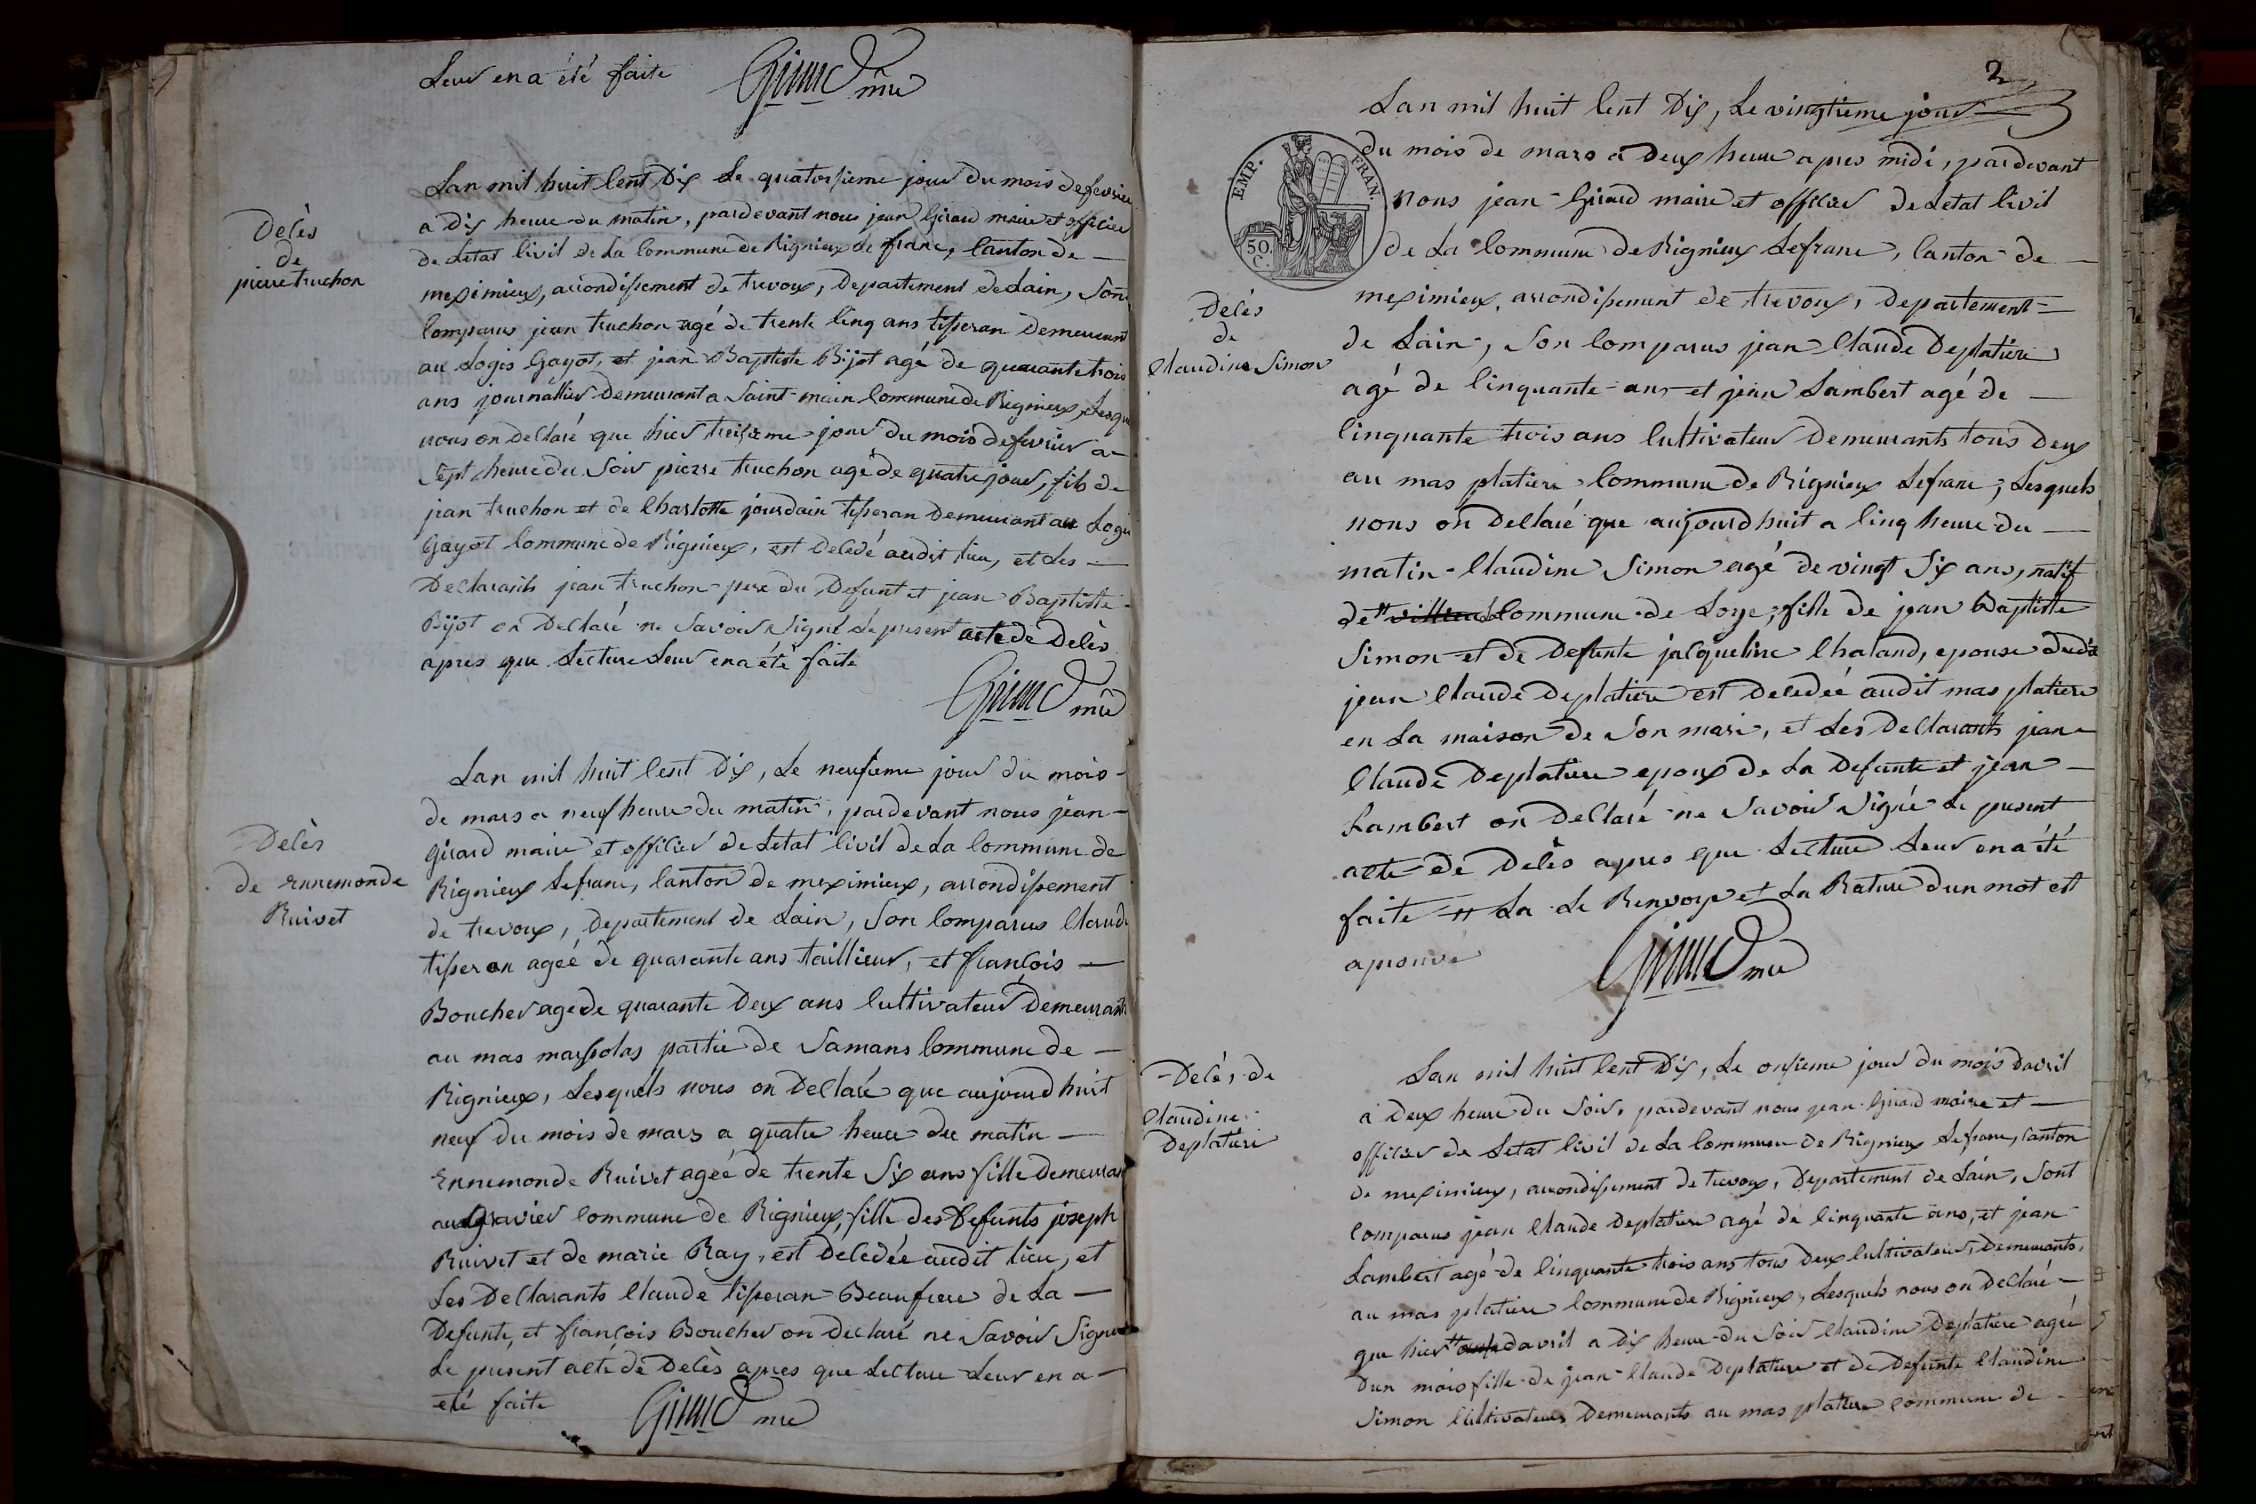 Leur en a été faite Girard mre
Lan mil huit Cent Dix Le quatorsieme jour du mois de fevrier
Decès
de
pierre truchon
a Dix heure du matin, pardevant nous jean Girard maire et officier
de Letat Civil de La Commune de Rignieux Le franc, Canton de
meximieux, arrondissement de trevoux, Departement de Lain, Son
Comparus jean truchon agé de trente Cinq ans tisseran Demeurant
au Logis Gayot, et jean Baptiste Bijot agé de quarante trois
ans journallier Demeurant a Saint-main Commune de Rignieux, Lesque
nous on Declaré que hier treisieme jour du mois de fevrier a
Sept heure du Soir pierre truchon agé de quatre jour, fils de
jean truchon et de Charlotte jourdain tisseran Demeurant au Logis
Gayot Commune de Rignieux, est Decedé audit lieu, et Les
Declarants jean truchon pere du Defunt et jean Baptiste
Bijot on Declaré ne Savoir Signé Le present acte de Decès
apres que Lecture Leur en a été faite
Girard mre
Lan mil huit Cent Dix, Le neufieme jour du mois
de mars a neuf heure du matin, pardevant nous jean
Decès
de Ennemonde
Ruivet
Girard maire et officier de Letat Civil de La Commune de
Rignieux Le franc, Canton de meximieux, arrondissement
de trevoux, Departement de Lain, Son Comparus Claude
tisseran ageé de quarante ans taillieur, et françois
Boucher agé de quarante Deux ans Cultivateur Demeurants
au mas massolas partie de Samans Commune de
Rignieux, Lesquels nous on Declaré que aujourdhuit
neuf du mois de mars a quatre heure du matin
Ennemonde Ruivet ageé de trente Six ans fille Demeurant
au Gravier Commune de Rignieux, fille des Defunts joseph
Ruivet et de marie Ray, est Decedée audit lieu, et
Les Declarants Claude tisseran Beaufrere de La
Defunte, et françois Boucher on Declaré ne Savoir Signer
Le present acte de Decès apres que Lecture Leur en a
eté faite Girard mre
2
Lan mil huit Cent Dix, Le vingtieme jour
EMP. FRAN.
50.
C.
du mois de mars a Deux heure apres midi, pardevant
nous jean Girard maire et officier de Letat Civil
de La Commune de Rignieux Lefranc, Canton de
Decès
de
Claudine Simon
meximieux, arrondissement de trevoux, Departement
de Lain, Son Comparus jean Claude Deplatiere
agé de Cinquante ans et jean Lambert agé de
Cinquante trois ans Cultivateur Demeurants tous Deux
au mas platiere Commune de Rignieux Lefranc, Lesquels
nous on Declaré que aujourdhuit a Cinq heure du
matin Claudine Simon agé de vingt Six ans, natif
de Commune de Loye, fille de jean Baptiste
Simon et de Defunte jacqueline Chaland, epouse dudit
jean Claude Deplatiere est Decedeé audit mas platiere
en La maison de Son mari, et Les Declarants jean
Claude Deplatiere epoux de La Defunte et jean
Lambert on Declaré ne Savoir Signé Le present
acte de Decès apres que Lecture Leur en a été
faite # La Le Renvoye et La Rature dun mot est
aprouvé Girard mre
Decès de
Claudine
Deplatiere
Lan mil huit Cent Dix, Le onsieme jour du mois davril
a Deux heure du Soir, pardevant nous jean Girard maire et
officier de Letat Civil de La Commune de Rignieux Lefranc, Canton
de meximieux, arrondissement de trevoux, Departement de Lain, Sont
Comparus jean Claude Deplatiere agé de Cinquante ans, et jean
Lambert agé de Cinquante trois ans tous Deux Cultivateurs, Demeurants
au mas platiere Commune de Rignieux, Lesquels nous on Declaré
que hier davril a Dix heure du Soir Claudine Deplatiere ageé
Dun mois fille de jean Claude Deplatiere et de Defunte Claudine
Simon Cultivateurs Demeurants au mas platiere Commune de